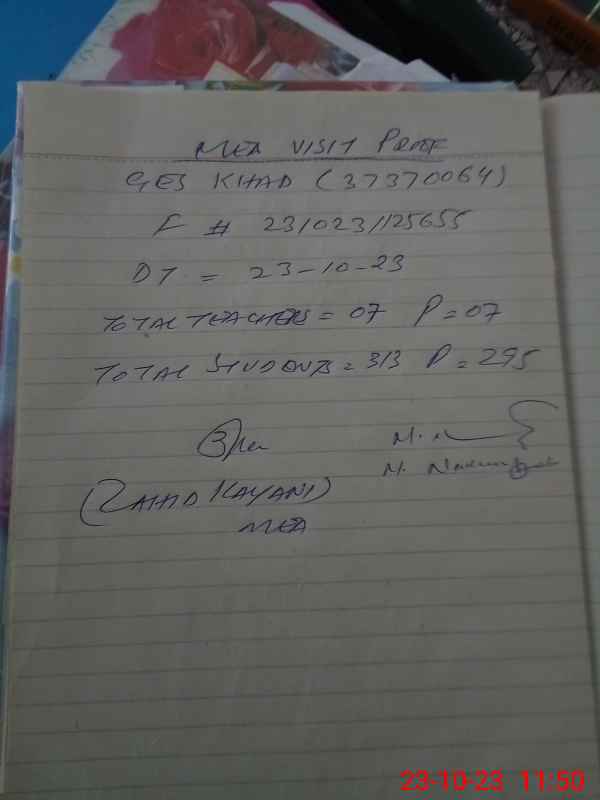 MEA VISIT PROOF
GES KHAD (37370064)
F # 231023/125655
DT = 23-10-23
TOTAL TEACHERS = 07 P = 07
TOTAL STUDENTS = 313 P = 295
(ZAHID KAYANI)
MEA
23-10-23 11:50